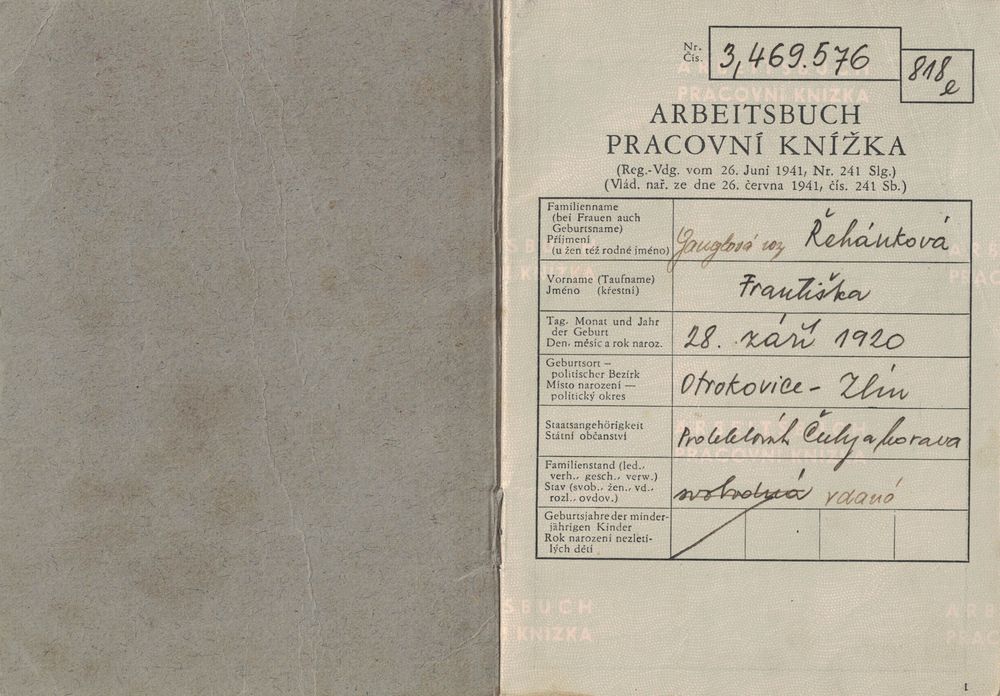 Nr.
Čís.
3,469.576
818
e
ARBEITSBUCH
PRACOVNÍ KNÍŽKA
ARBEITSBUCH
PRACOVNÍ KNÍŽKA
(Reg.-Vdg. vom 26. Juni 1941, Nr. 241 Slg.)
(Vlád. nař. ze dne 26. června 1941, čís. 241 Sb.)
Familienname
(bei Frauen auch
Geburtsname)
Příjmení
(u žen též rodné jméno)
roz Řehánková
Vorname (Taufname)
Jméno (křestní)
Františka
Tag, Monat und Jahr
der Geburt
Den, měsíc a rok naroz.
28. září 1920
Geburtsort –
politischer Bezirk
Místo narození —
politický okres
Otrokovice – Zlín
Staatsangehörigkeit
Státní občanství
Protektorát Čechy a Morava
Familienstand (led.,
verh., gesch., verw.)
Stav (svob., žen., vd.,
rozl., ovdov.)
svobodná vdaná
Geburtsjahre der minder-
jährigen Kinder
Rok narození nezleti-
lých dětí
SBUCH
KNIZKA
1